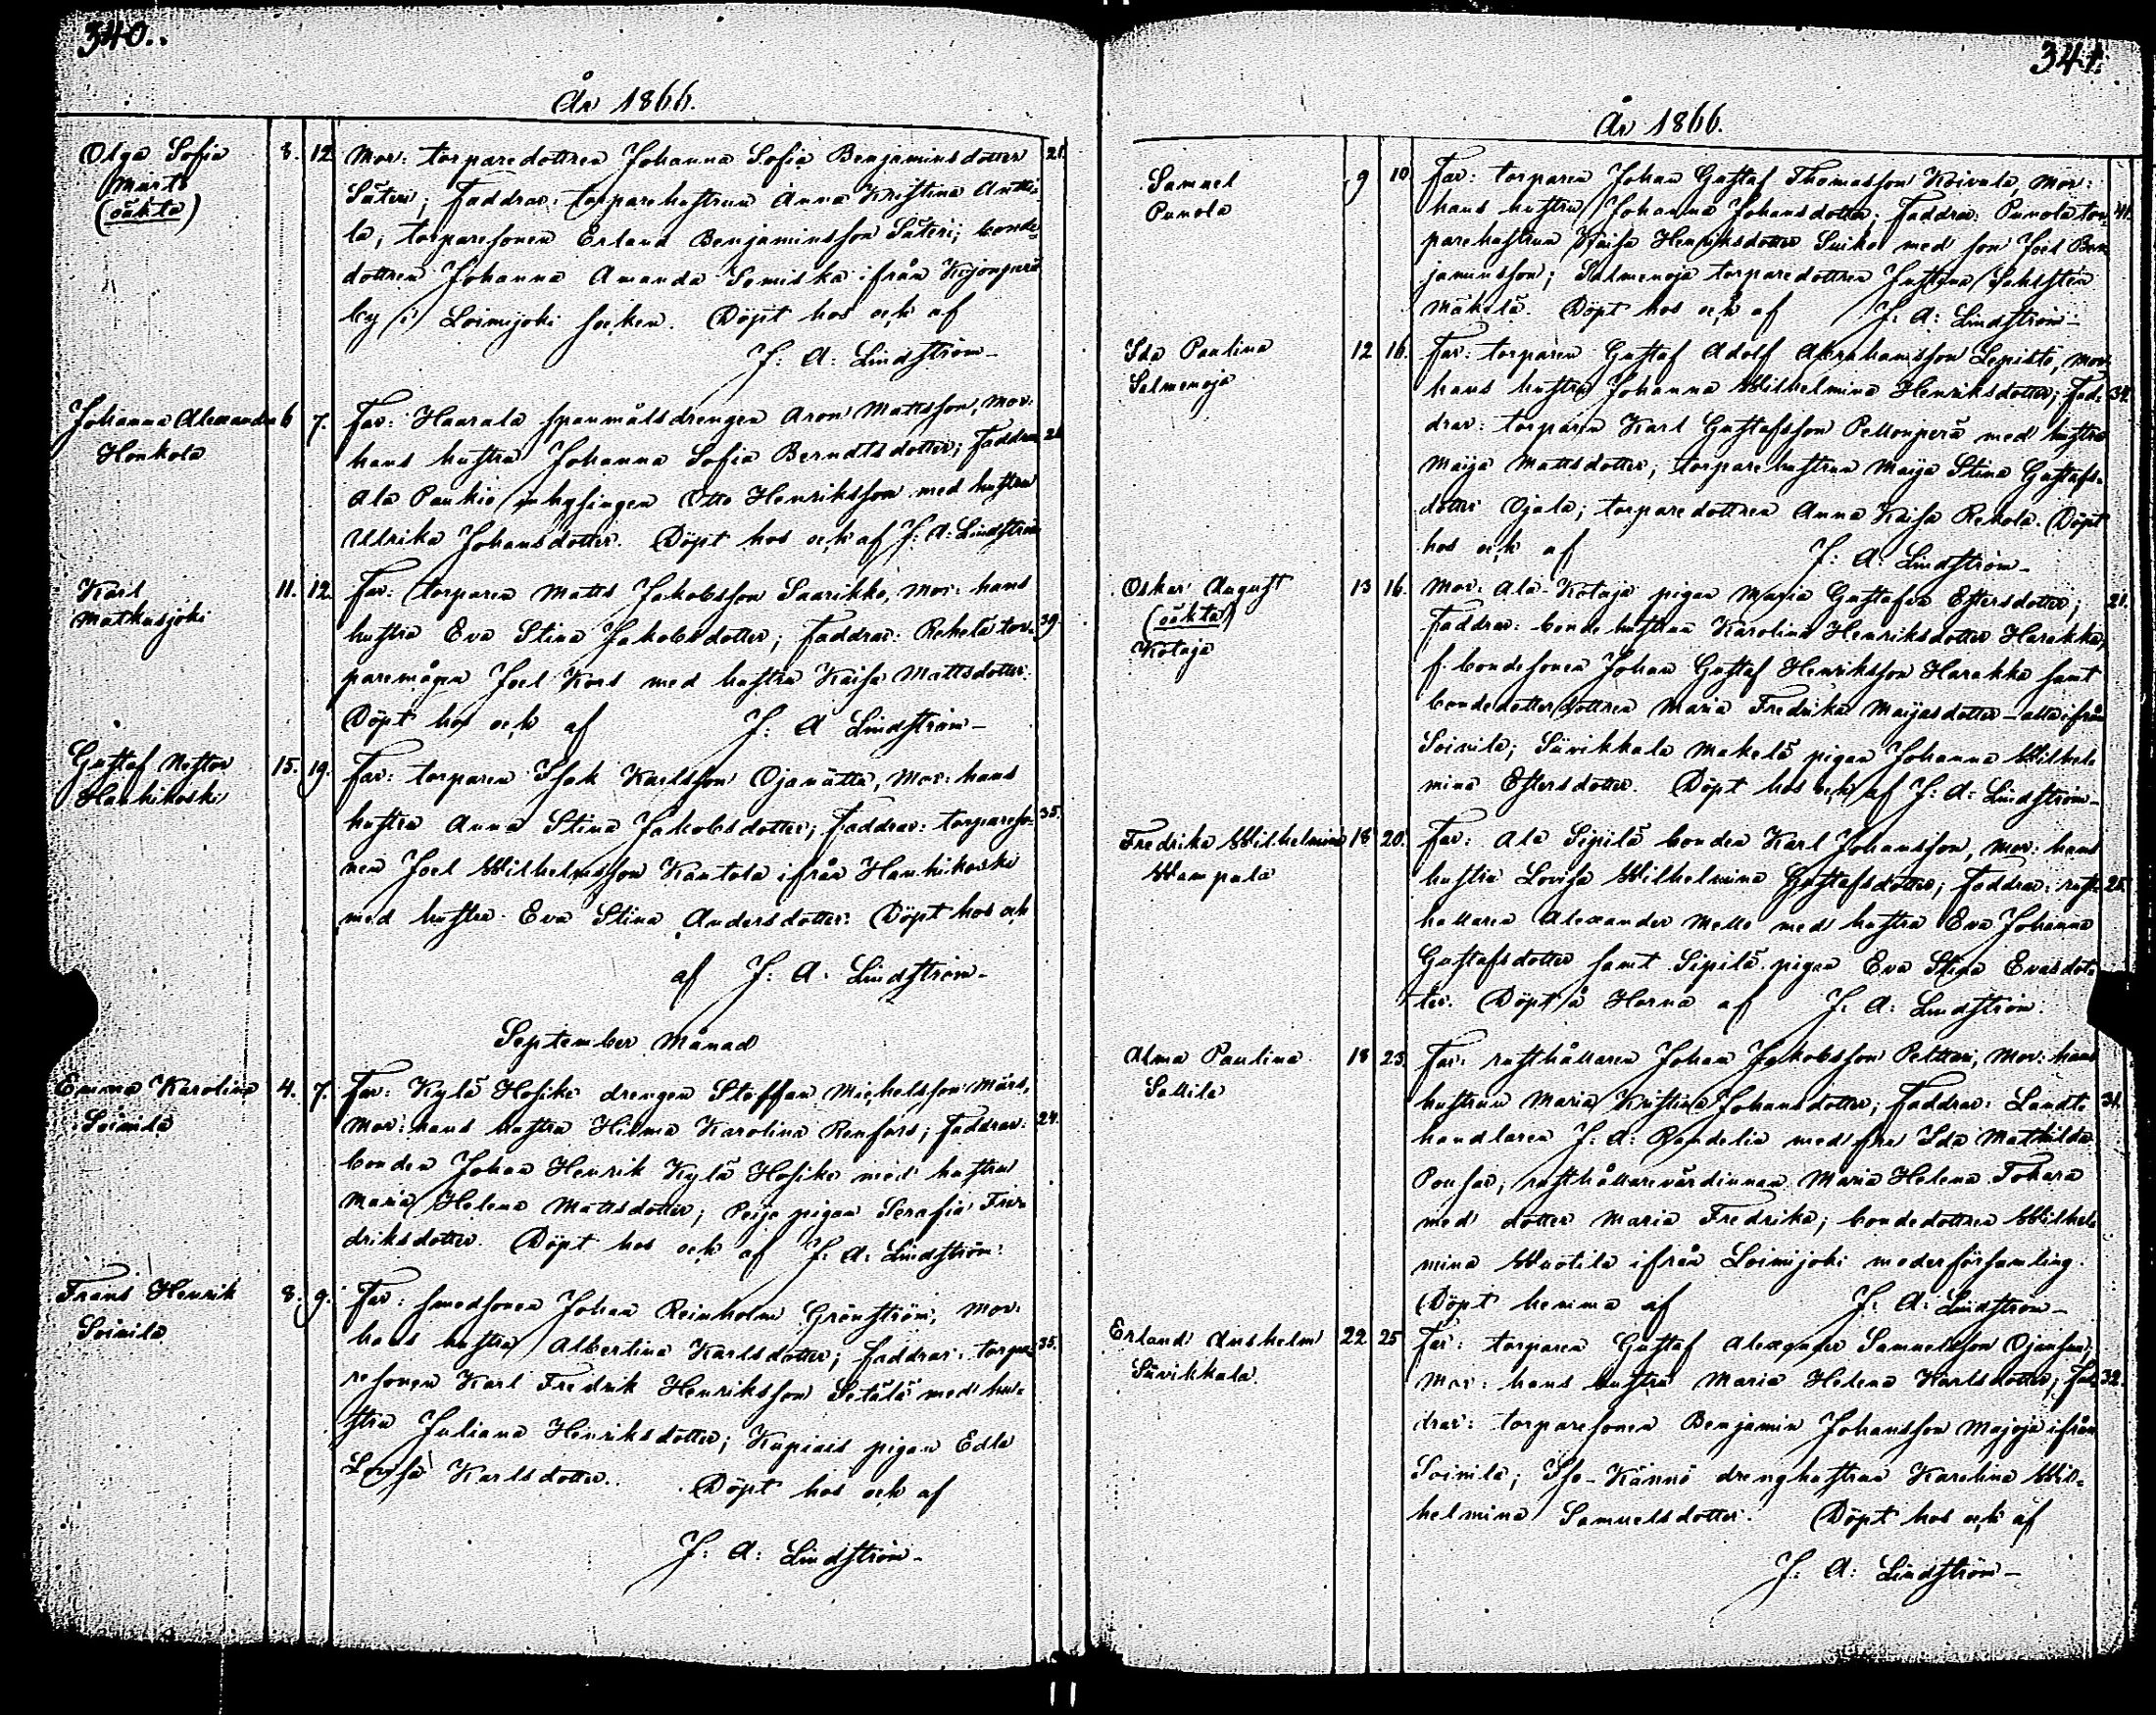 340.
År 1866.
Olga Sofia 8. 12 Mor: torparedottren Johanna Sofia Benjaminsdotter 21.
Märt
(oäkta)
Säteri; Faddrar: torparehustrun Anna Kristina Antti-
la; torparesonen Erland Benjaminsson Säteri; bonde-
dottren Johanna Amanda Somiska ifrån Kojonperä
by i Loimijoki socken. Döpt hos och af
J: A: Lindström-
Johanna Alexandra 6 7. Far: Haarala spanmålsdrengen Aron Mattsson, Mor:
Honkola
hans hustru Johanna Sofia Berndtsdotter; Faddrar
Ala Paukio inhysingen Otto Henriksson med hustru
Ulrika Johansdotter. Döpt hos och af J: A: Lindström
Karl 11. 12. Far: torparen Matts Jakobsson Saarikko, Mor: hans
Matkusjoki
hustru Eva Stina Jakobsdotter; Faddrar: Rekola tor- 39.
paremågen Joel Kors med hustru Kaisa Mattsdotter.
Döpt hos och af J: A Lindström-
Gustaf Nestor 15. 19. Far: torparen Isak Karlsson Ojanätta, Mor: hans
Hanhikoski
hustru Anna Stina Jakobsdotter; Faddrar: torpareso- 35.
nen Joel Wilhelmsson Kantola ifrån Hanhikoski
med hustru Eva Stina Andersdotter: Döpt hos och
af J: A: Lindström-
September Månad
Emma Karolina 4. 7. Far: Kylä Hosike drengen Staffan Michelsson Mårs,
Soinila
Mor: hans hustru Hilma Karolina Renfors; Faddrar: 24.
bonden Johan Henrik Kylä Hosike med hustru
Maria Helena Mattsdotter; Peijo pigan Serafia Fre-
driksdotter. Döpt hos och af J: A: Lindström:
Frans Henrik 8. 9. Far: smedsonen Johan Reinholm Grönström, Mor:
Soinila
hans hustru Albertina Karlsdotter; Faddrar: torpa- 35.
resonen Karl Fredrik Henriksson Setälä med hu-
stru Juliana Henriksdotter; Kupiais pigan Edla
Lovisa Karlsdotter. Döpt hos och af
J: A: Lindström-
341.
År 1866.
Samuel 9 10 Far: torparen Johan Gustaf Thomasson Koivula, Mor:
Punola
hans hustru Johanna Johansdotter; Faddrar: Punola tor- 41.
parehustrun Kaisa Henriksdotter Suiko med son Joel Ben-
jaminsson; Salmenoja torparedottren Justina Sahlstén
Mäkelä. Döpt hos och af J: A: Lindström-
Ida Paulina 12 16. Far: torparen Gustaf Adolf Abrahamsson Lepistö, Mor:
Salmenoja
hans hustru Johanna Wilhelmina Henriksdotter; Fad- 34.
drar: torparen Karl Gustafsson Pellonperä med hustru
Maija Mattsdotter; torparehustrun Maija Stina Gustafs-
dotter Ojala; torparedottren Anna Kaisa Rekola. Döpt
hos och af J: A: Lindström-
Oskar August 13 16. Mor: Ala-Kotaja pigan Maria Gustafva Estersdotter; 21.
(oäkta)
Kotaja
Faddrar: bondehustrun Karolina Henriksdotter Harakka,
f. bondesonen Johan Gustaf Henriksson Harakka samt
bondedotterdottren Maria Fredrika Maijasdotter - alla ifrån
Soinila; Särvikkala Makelä pigan Johanna Wilhel-
mina Estersdotter. Döpt hos och af J: A: Lindström-
Fredrika Wilhelmina 18 20. Far: Ala Sipilä bonden Karl Johansson, Mor: hans
Wampula
hustru Lovisa Wilhelmina Gustafsdotter; Faddrar: rust- 25.
hållaren Alexander Mello med hustru Eva Johanna
Gustafsdotter samt Sipilä pigan Eva Stina Evasdot-
ter. Döpt å Horna af J: A: Lindström.
Alma Paulina 18 23. Far: rusthållaren Johan Jakobsson Pelttari, Mor: hans
Sallila
hustrun Maria Kristina Johansdotter; Faddrar: Landt- 31.
handlaren J: A: Randelin med fru Ida Mathilda
Ponsar, rusthållarevärdinnan Maria Helena Tokara
med dotter Maria Fredrika; bondedottren Wilhel-
mina Wuotila ifrån Loimijoki moderförsamling.
Döpt hemma af J: A: Lindström-
Erland Anshelm 22 25 Far: torparen Gustaf Alexander Samuelsson Ojansuu;
Särvikkala.
Mor: hans hustru Maria Helena Karlsdotter; Fad- 32.
drar: torparesonen Benjamin Johansson Majoja ifrån
Soinila; Iso-Kännö drenghustrun Karolina Wil-
helmina Samuelsdotter. Döpt hos och af
J: A: Lindström-